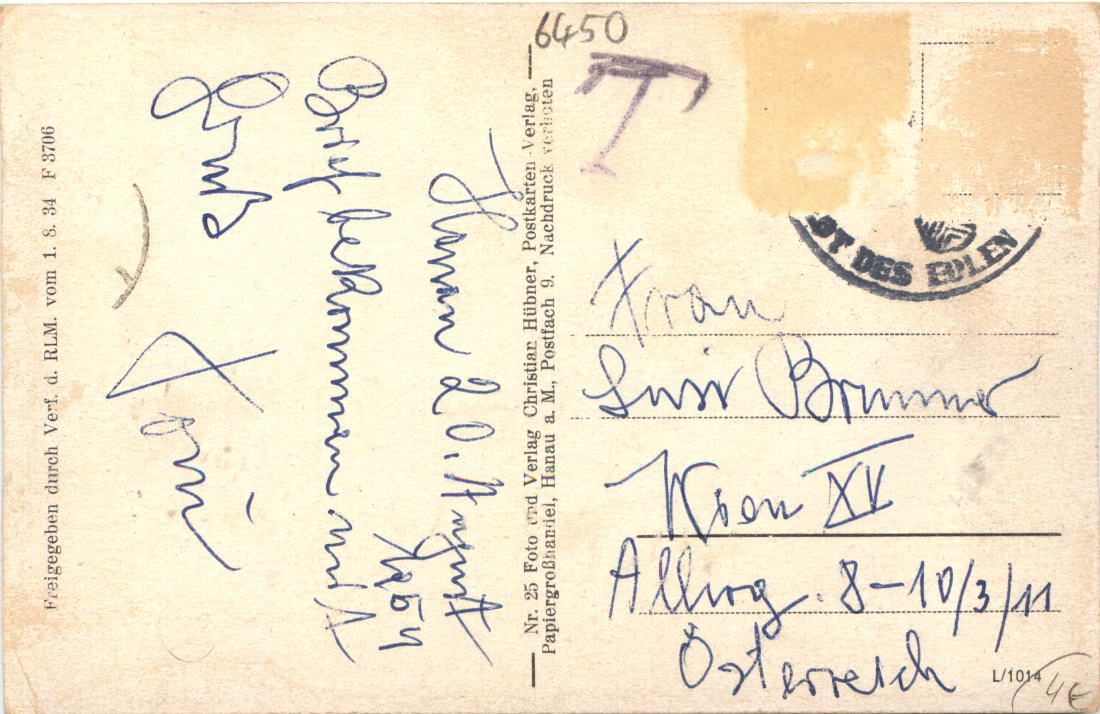 Freigegeben durch Verf. d. RLM. vom 1. 8. 34 F 3706
Hanau 20. August
1954
Brief bekommen
Gruß
Toni
Nr. 25 Foto und Verlag Christian Hübner, Postkarten-Verlag,
Papiergroßhandel, Hanau a. M., Postfach 9. Nachdruck verboten
6450
T
DT DES EDLEN
Frau
Luise Brunner
Wien XV
Alliog. 8-10/3/11
Österreich
L/1014
4€